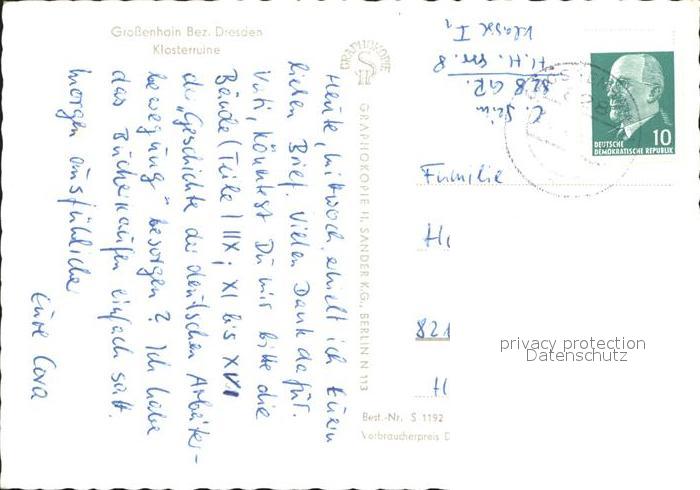 Großenhain Bez. Dresden
Klosterruine
Heute, Mittwoch, erhielt ich Euren
lieben Brief. Vielen Dank dafür.
Vati, könntest Du mir bitte die
Bände (Teile) IIX; XI bis XVI
der „Geschichte der deutschen Arbeiter-
bewegung" besorgen? Ich habe
das Bücherkaufen einfach satt.
Morgen ausführlicher
Eure Cora
GRAPHOKOPIE
GRAPHOKOPIE H. SANDER K.G., BERLIN N 113
Best.-Nr. S 1192
Verbraucherpreis D
H.H. Str. 8
Klasse I
10
DEUTSCHE
DEMOKRATISCHE REPUBLIK
Familie
821
privacy protection
Datenschutz